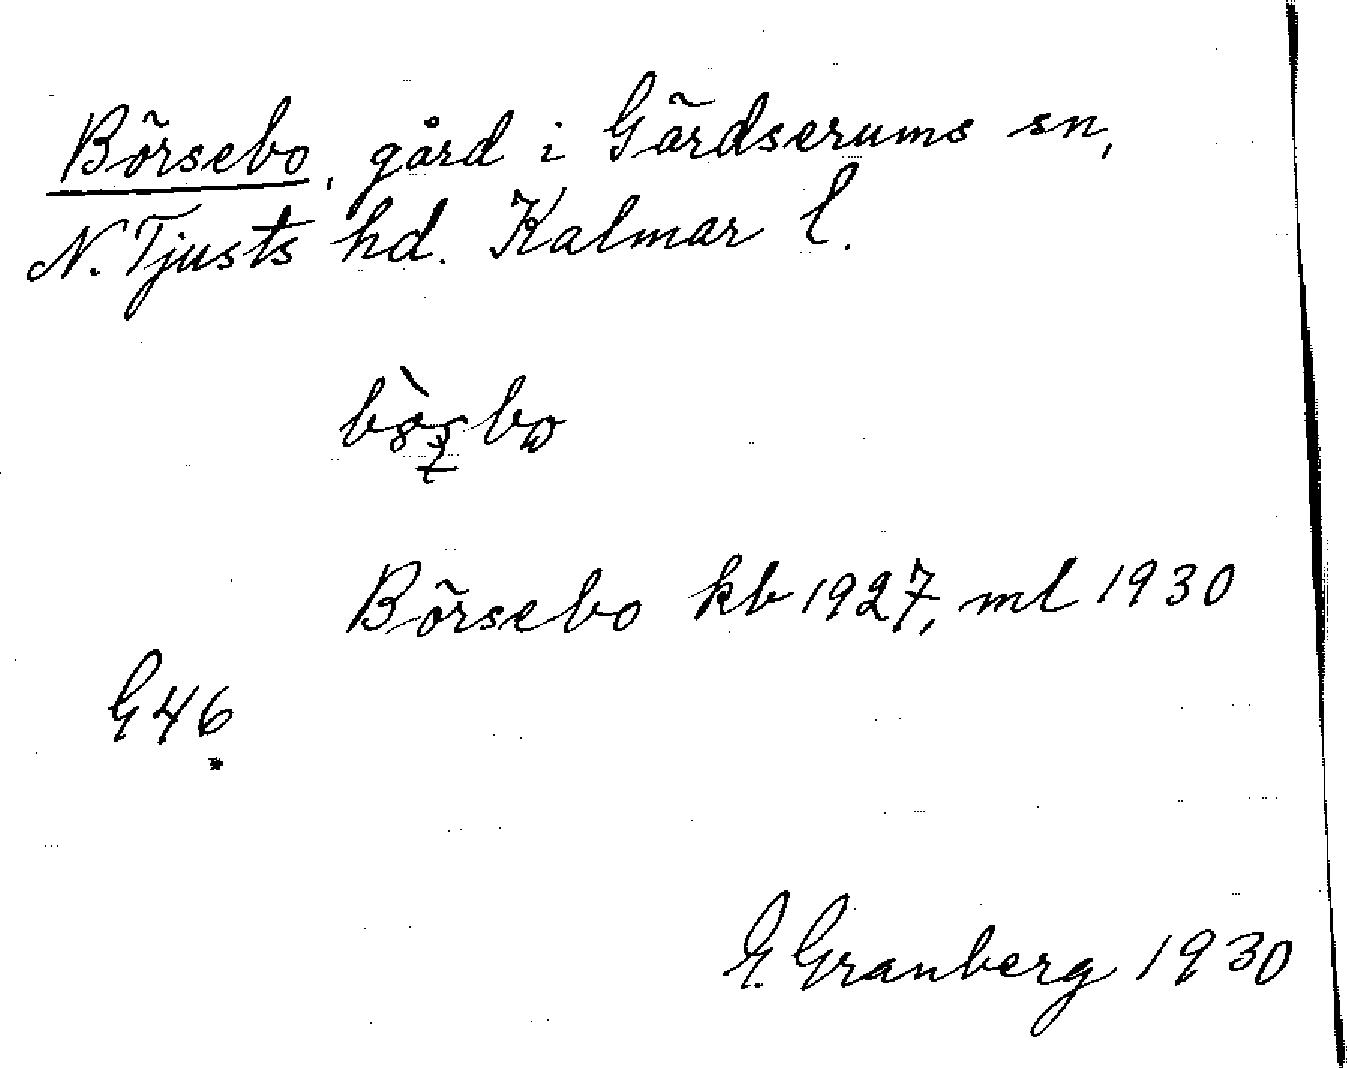 Börsebo, gård i Gärdserums sn,
N. Tjusts hd. Kalmar l.
Börsebo kb 1927, ml 1930
G46
E. Granberg 1930